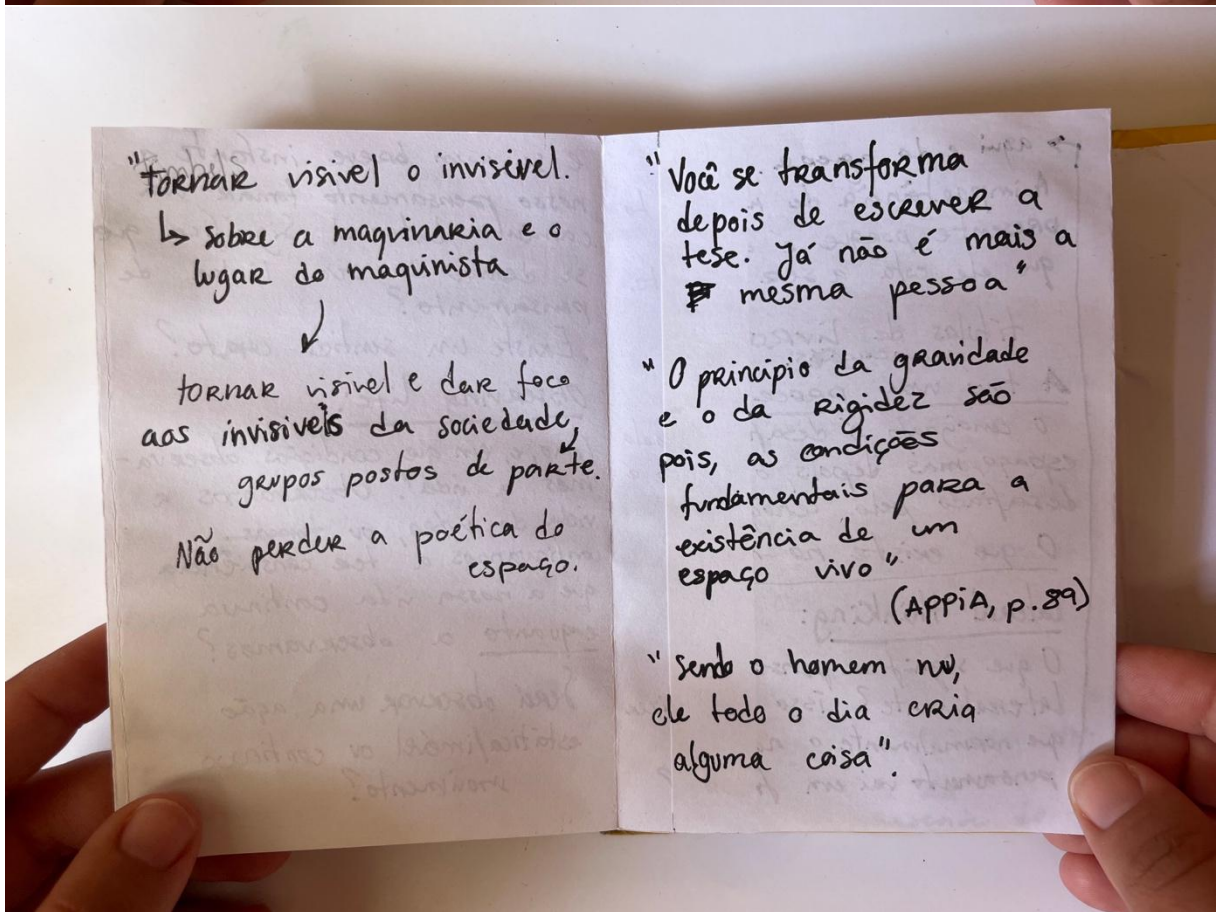 "tornar visivel o invisível.
↳ sobre a maquinaria e o
lugar do maquinista
tornar visivel e dar foco
aos invisiveis da sociedade,
grupos postos de parte.
Não perder a poética do
espaço.
"Você se transforma
depois de escrever a
tese. Já não é mais a
mesma pessoa"
"O princípio da gravidade
e o da rigidez são
pois, as condições
fundamentais para a
existência de um
espaço vivo"
(APPiA, p.89)
"sendo o homem nu,
ele todo o dia cria
alguma coisa".